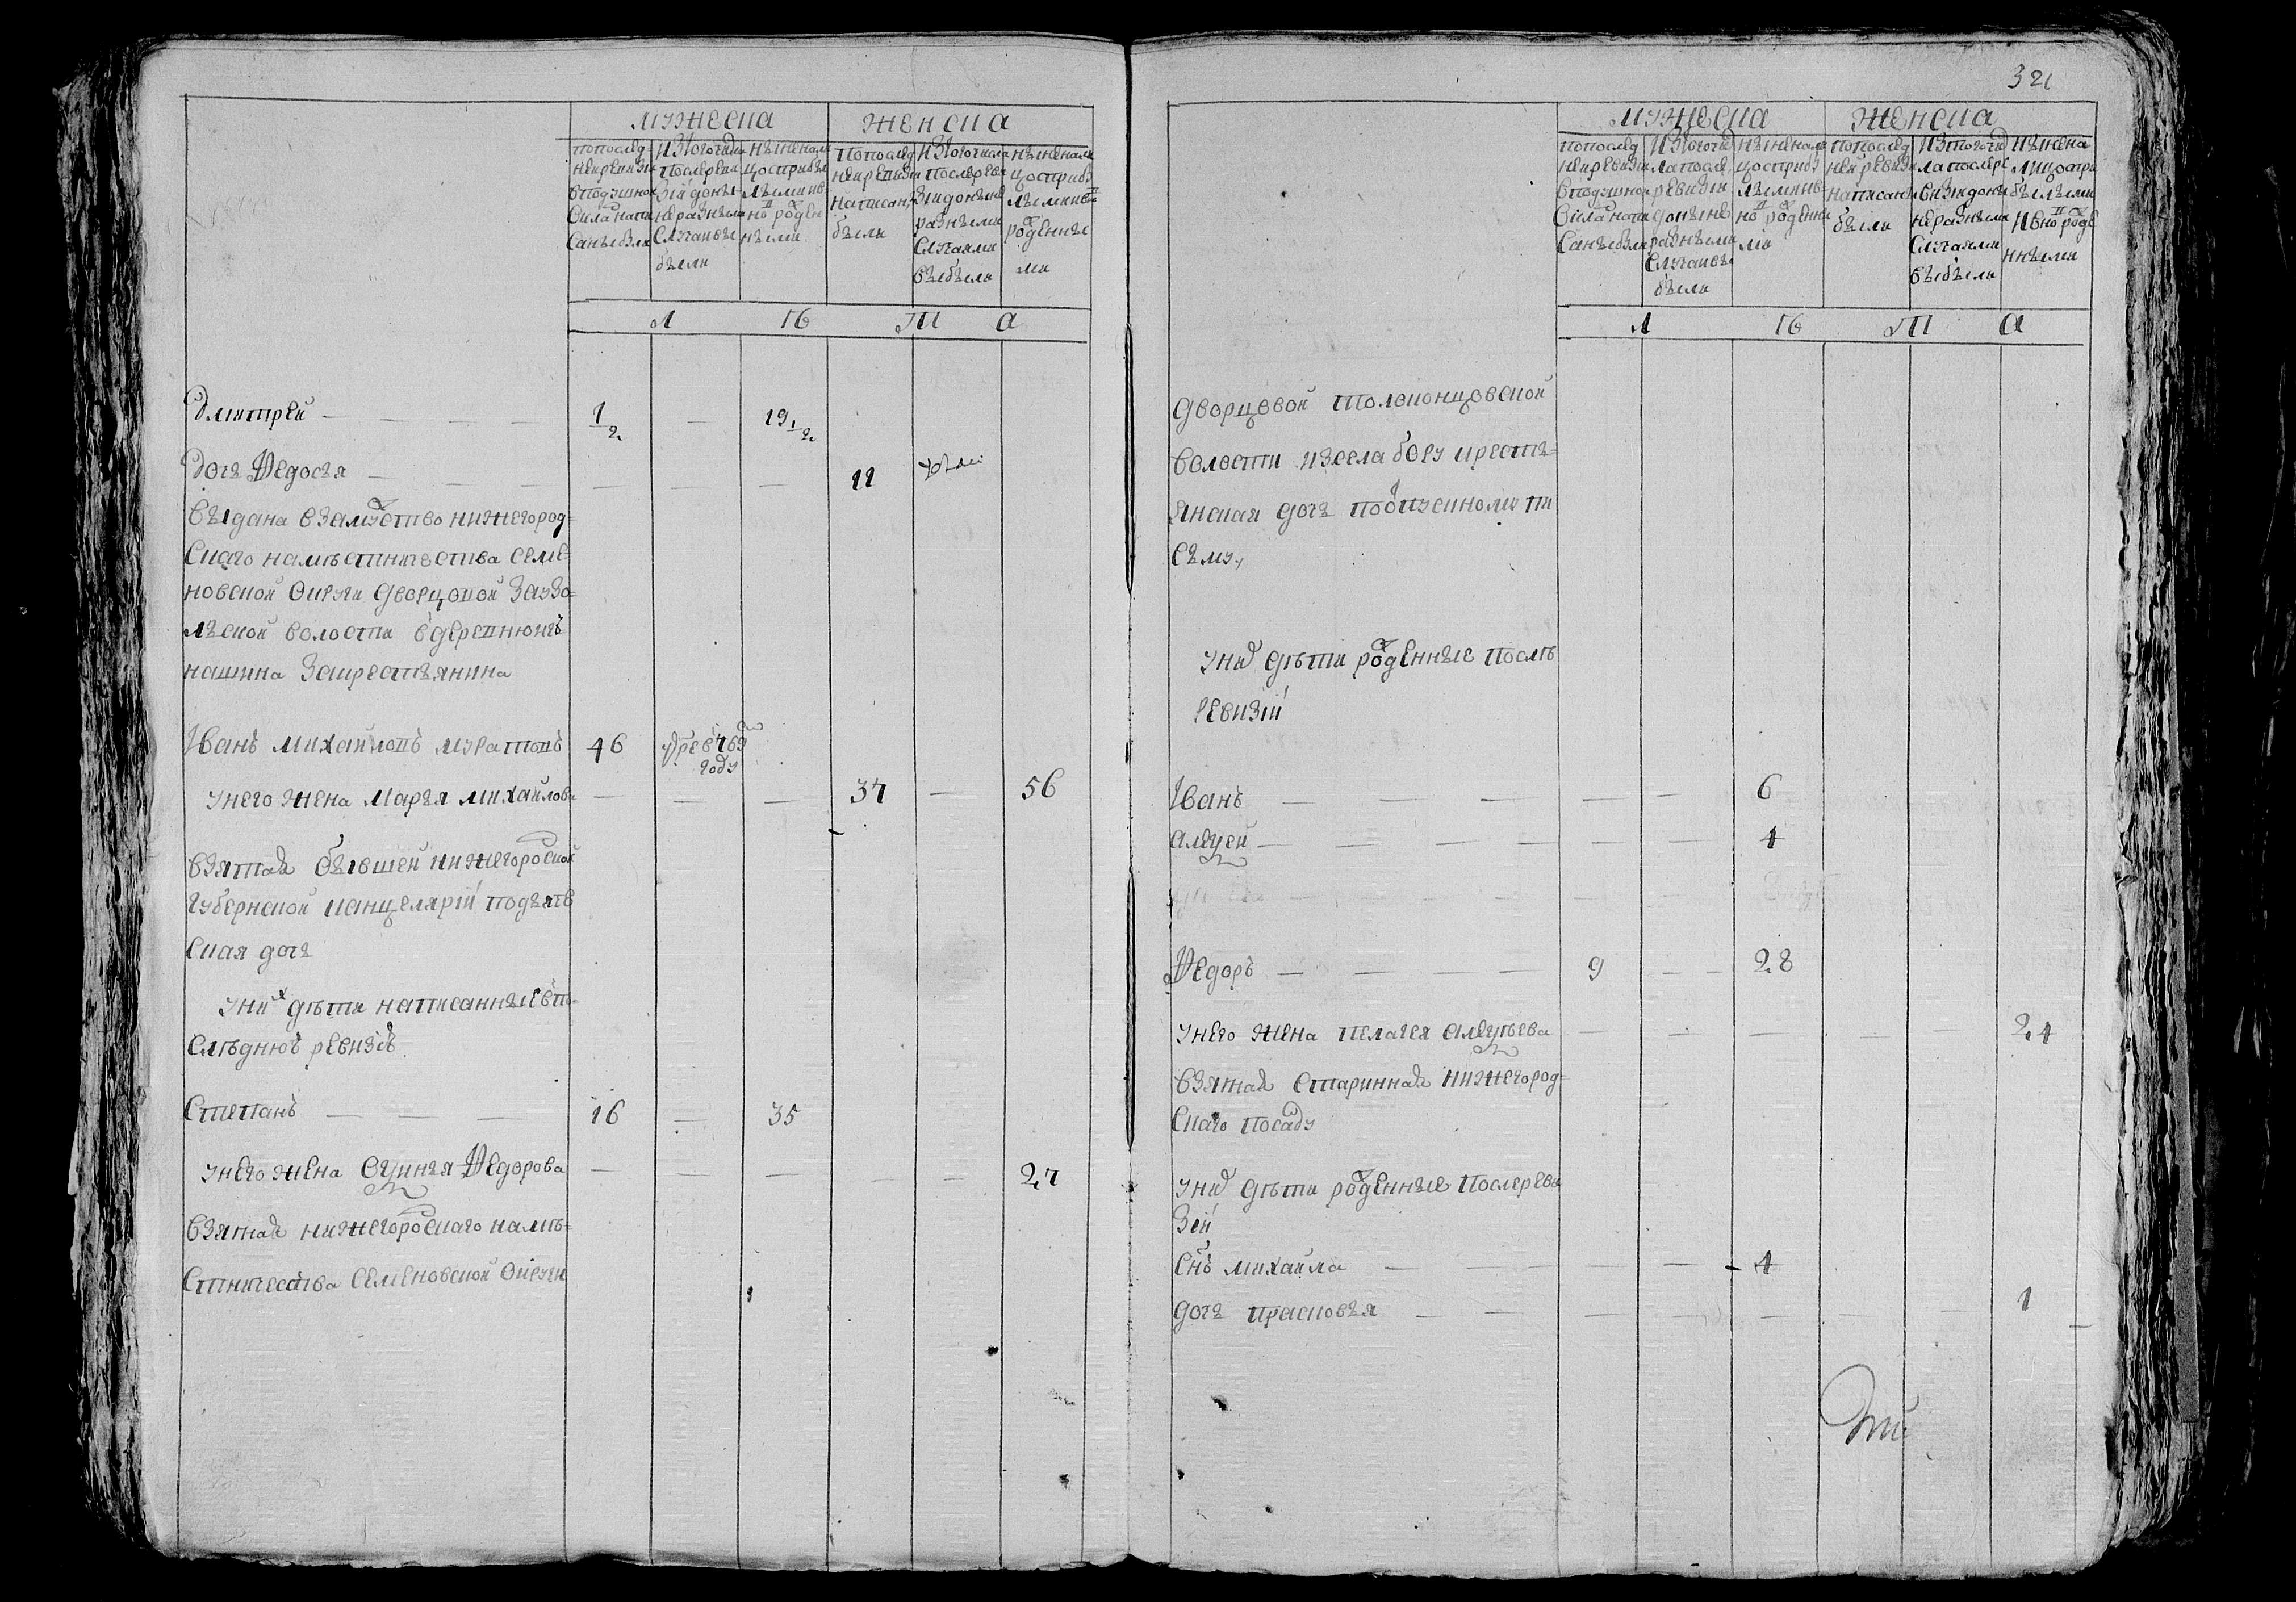 мужеска женска
попослед
ней ревизи
вподушной
склад напи
саны были
Изтого числа
послереви
зіи доныне
разными
случаи вы
были
ныне на лицо
сприбылыми
и вновь рожден
ными
попослед
ней ревизи
написаны
были
Изтого числа
послереви
зіи доныне
разными
случаями
выбыли
ныне на лицо
сприбылыми
и вновь
рожденны
ми
л ѣ т а
Дмитрей 1/2 — 19 1/2
дочь Федосья — — — 11
выдана взамуство нижегород=
скаго наместничества семе=
новской округи дворцовой заузо=
лской волости вдеревню
нашина закрестьянина
Иванъ михайловъ муратовъ 46 умре в 769 году
унего жена Марья михайлова — — — 37 — 56
взятая бывшей нижегородской
губернской канцеляріи подьяче
ская дочь
у них дѣти написанные впо=
следнюю ревизію
Степанъ — 16 — 35
унего жена Федорова — — — — — 27
взятая нижегородскаго намѣ=
стничества семеновской округи
321
мужеска женска
попослед
ней ревизи
вподушной
склад напи
саны были
Изтого чис
ла после
ревизіи
доныне
разными
случаи вы
были
ныне на ли
цо сприбы
лыми и в
новь рожденны
ми
попослед
ней ревизи
написаны
были
Изтого чис
ла послере
визіи доны
не разными
случаями
выбыли
ныне на
лицо при
былыми
и вновь рожде
нными
л ѣ т а
дворцовой толоконцовской
волости изсела бору кресть=
янская дочь поотпускному пи
сьму,
у них дѣти рожденные послѣ
ревизіи
Иванъ — — — — — 6
алексей — — — — — 4
Федоръ — — — 9 — 28
унего жена пелагея алексѣева — — — — — 24
взятая старинная нижегород=
скаго посаду
у них дѣти рожденные послереви
зіи
сынъ михаила — — — 4
дочь прасковья — — — — — 1